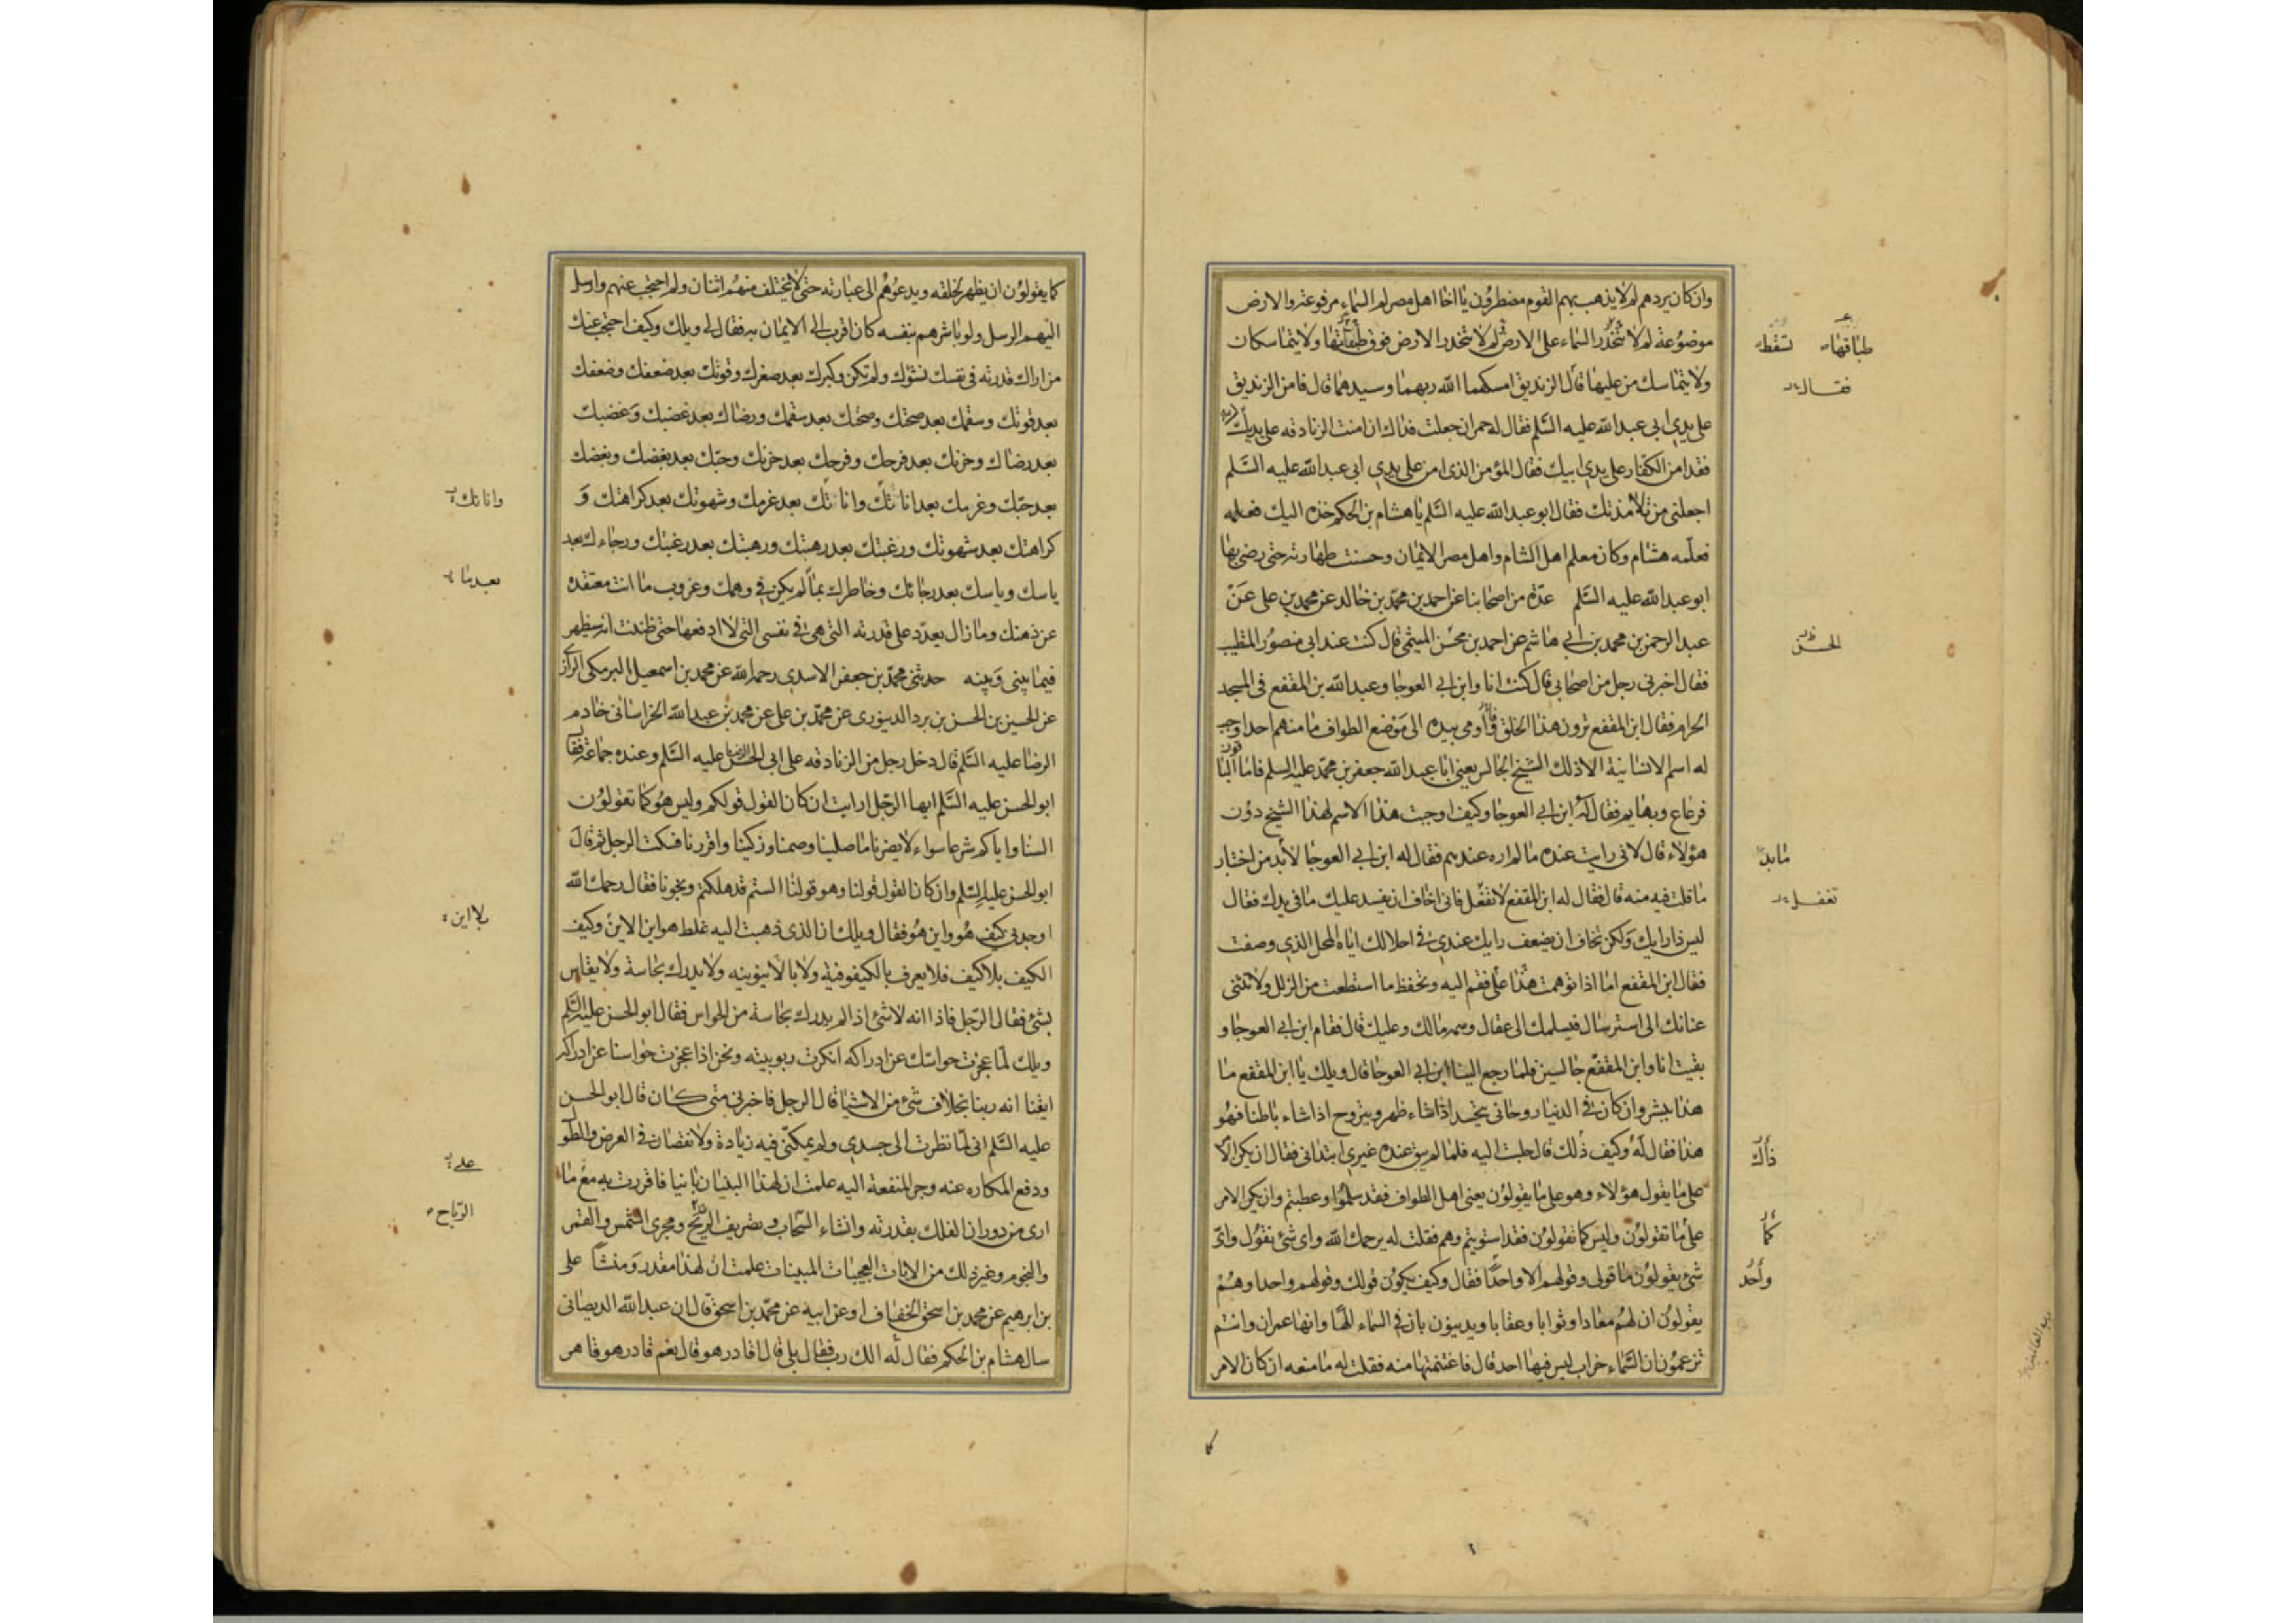 وان كان يردهم لم لا يذهب بهم القوم مضطرون يا اخا اهل مصر لم السماء مرفوعة والارض
موضوعة لم لا تنحدر السماء على الارض لم لا تنحدر الارض فوق طباقها ولا يتماسكان
ولا يتماسك من عليها قال الزنديق امسكهما الله ربهما وسيدهما قال فامن الزنديق
على يدي ابي عبد الله عليه السلم فقال له حمران جعلت فداك ان امنت الزنادقه على يديك
فقد امن الكفار على يدي ابيك فقال المؤمن الذي امن على يدي ابي عبد الله عليه السلم
اجعلني من تلامذتك فقال ابو عبد الله عليه السلم يا هشام بن الحكم خذه اليك فعلمه
فعلمه هشام وكان معلم اهل الشام واهل مصر الايمان وحسنت طهارته حتى رضي بها
ابو عبد الله عليه السلم عدة من اصحابنا عن احمد بن محمد بن خالد عن محمد بن علي عن
عبد الرحمن بن محمد بن ابي هاشم عن احمد بن محسن الميثمي قال كنت عند ابي منصور المتطبب
فقال اخبرني رجل من اصحابي قال كنت انا وابن ابي العوجا وعبد الله بن المقفع في المسجد
الحرام فقال ابن المقفع ترون هذا الخلق واومى بيده الى موضع الطواف ما منهم احد اوجب
له اسم الانسانية الا ذلك الشيخ الجالس يعني ابا عبد الله جعفر بن محمد عليه السلم فاما الباقون
فرعاع وبهايم فقال له ابن ابي العوجا وكيف اوجبت هذا الاسم لهذا الشيخ دون
هؤلاء قال لاني رايت عنده ما لم اره عندهم فقال له ابن ابي العوجا لابد من اختبار
ما قلت فيه منه قال فقال له ابن المقفع لا تفعل فاني اخاف ان يفسد عليك ما في يدك فقال
ليس ذا رايك ولكن تخاف ان يضعف رايك عندي في احلالك اياه المحل الذي وصفت
فقال ابن المقفع اما اذا توهمت هذا علي فقم اليه وتحفظ ما استطعت من الزلل ولا تثني
عنانك الى استرسال فيسلمك الى عقال وسمه مالك وعليك قال فقام ابن ابي العوجا و
بقيت انا وابن المقفع جالسين فلما رجع الينا ابن ابي العوجا قال ويلك يا ابن المقفع ما
هذا ببشر وان كان في الدنيا روحاني يتجسد اذا شاء ظهر ويتروح اذا شاء باطنا فهو
هذا فقال له وكيف ذلك قال جلست اليه فلما لم يبق عنده غيري ابتداني فقال ان يكن الامر
على ما يقول هؤلاء وهو على ما يقولون يعني اهل الطواف فقد سلموا وعطبتم وان يكن الامر
على ما تقولون وليس كما تقولون فقد استويتم وهم فقلت له يرحمك الله واي شئ نقول واي
شئ يقولون ما قولي وقولهم الا واحدا فقال وكيف يكون قولك وقولهم واحدا وهم
يقولون ان لهم معادا وثوابا وعقابا ويدينون بان في السماء الها وانها عمران وانتم
تزعمون ان السماء خراب ليس فيها احد قال فاغتنمتها منه فقلت له ما منعه ان كان الامر
طباقها تسقط
فقال
الحسن
مابد
تفعل
ذاك
كما
واحد
كما يقولون ان يظهر لخلقه ويدعوهم الى عبارته حتى لا يختلف منهم اثنان ولم احتجب عنهم وارسل
اليهم الرسل ولو باشرهم بنفسه كان اقرب الى الايمان به فقال لي ويلك وكيف احتجب عنك
من اراك قدرته في نفسك نشؤك ولم تكن وكبرك بعد صغرك وقوتك بعد ضعفك وضعفك
بعد قوتك وسقمك بعد صحتك وصحتك بعد سقمك ورضاك بعد غضبك وغضبك
بعد رضاك وحزنك بعد فرحك وفرحك بعد حزنك وحبك بعد بغضك وبغضك
بعد حبك وعزمك بعد اناتك واناتك بعد عزمك وشهوتك بعد كراهتك و
كراهتك بعد شهوتك ورغبتك بعد رهبتك ورهبتك بعد رغبتك ورجاءك بعد
ياسك وياسك بعد رجائك وخاطرك بما لم يكن في وهمك وعزوب ما انت معتقده
عن ذهنك وما زال يعدد على قدرته التي هي في نفسي التي لا ادفعها حتى ظننت انه سيظهر
فيما بيني وبينه حدثني محمد بن جعفر الاسدي رحمه الله عن محمد بن اسمعيل البرمكي الرازي
عن الحسين بن الحسن بن برد الدينوري عن محمد بن علي عن محمد بن عبد الله الخراساني خادم
الرضا عليه السلم قال دخل رجل من الزنادقه على ابي الحسن عليه السلم وعنده جماعة فقال
ابو الحسن عليه السلم ايها الرجل ارايت ان كان القول قولكم وليس هو كما تقولون
السنا واياكم شرعا سواء لا يضرنا ما صلينا وصمنا وزكينا واقررنا فسكت الرجل ثم قال
ابو الحسن عليه السلم وان كان القول قولنا وهو قولنا الستم قد هلكتم ونجونا فقال رحمك الله
اوجدني كيف هو واين هو فقال ويلك ان الذي ذهبت اليه غلط هو اين الاين وكيف
الكيف بلا كيف فلا يعرف بالكيفوفية ولا بالاينونيه ولا يدرك بحاسة ولا يقاس
بشئ فقال الرجل فاذا انه لا شئ اذا لم يدرك بحاسة من الحواس فقال ابو الحسن عليه السلم
ويلك لما عجزت حواسك عن ادراكه انكرت ربوبيته ونحن اذا عجزت حواسنا عن ادراكه
ايقنا انه ربنا بخلاف شئ من الاشيا قال الرجل فاخبرني متى كان قال ابو الحسن
عليه السلم اني لما نظرت الى جسدي ولم يمكني فيه زيادة ولا نقصان في العرض والطول
ودفع المكاره عنه وجر المنفعة اليه علمت ان لهذا البنيان بانيا فاقررت به مع ما
ارى من دوران الفلك بقدرته وانشاء السحاب وتصريف الريح ومجرى الشمس والقمر
والنجوم وغير ذلك من الايات العجيبات المبينات علمت ان لهذا مقدر ومنشأ علي
بن ابرهيم عن محمد بن اسحق الخفاف او عن ابيه عن محمد بن اسحق قال ان عبد الله الديصاني
سال هشام بن الحكم فقال له الك رب فقال بلى قال اقادر هو قال نعم قادر هو قاهر
واناتك
بعد ما
بلا اين
علي
الرياح